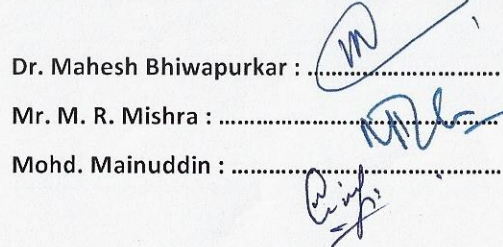 Dr. Mahesh Bhiwapurkar : ........................................
Mr. M. R. Mishra : ........................................
Mohd. Mainuddin : ........................................